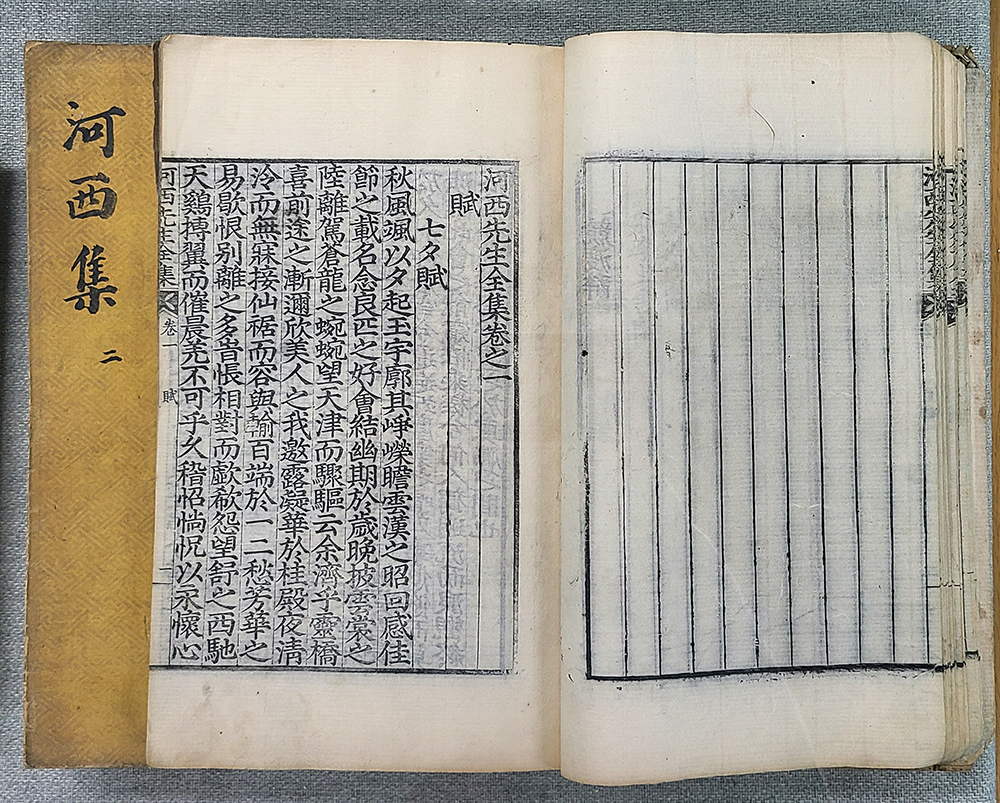 河西先生全集卷之一
賦
七夕賦
秋風颯以夕起玉宇廓其崢嶸瞻雲漢之昭回感佳
節之載名念良匹之好會結幽期於歲晚披雲裳之
陸離駕蒼龍之蜿蜿望天津而驟驅云余濟乎靈橋
喜前途之漸邇欣美人之我邀露凝華於桂殿夜淸
泠而無寐接仙裾而容與輸百端於一二愁芳華之
易歇恨別離之多旹悵相對而歔欷怨望舒之西馳
天鷄搏翼而催晨羌不可乎久稽怊惝怳以永懷心
河西先生全集 卷一 賦
河西集 二